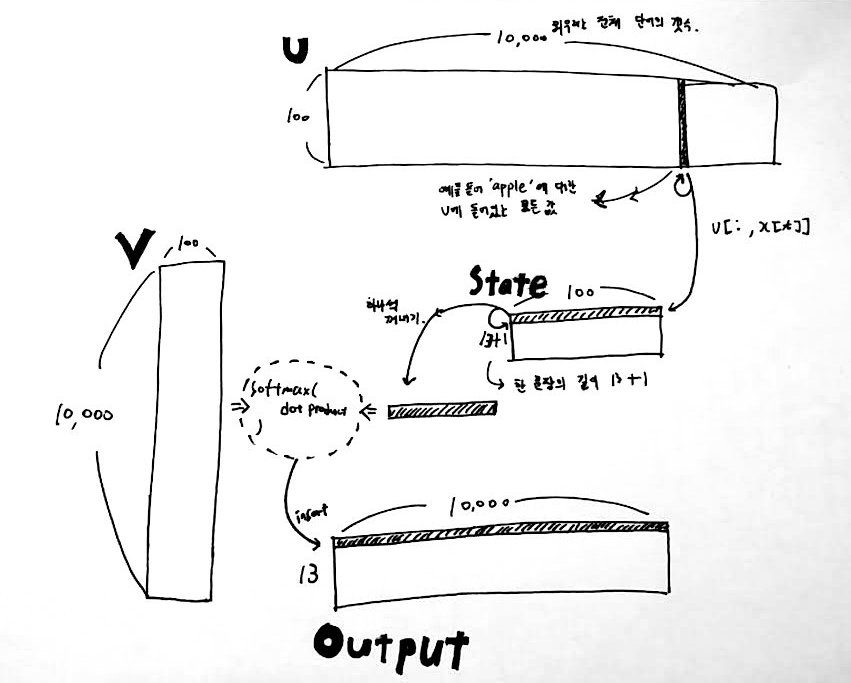 U
10,000 외우려는 전체 단어의 갯수.
100
예를 들어 'apple'에 대한
U에 들어있는 모든 값
U[:,x[t]]
V
100
10,000
State
100
13+1
하나씩
꺼내기.
한 문장의 길이 13+1
softmax(
dot product
)
insert
10,000
13
Output